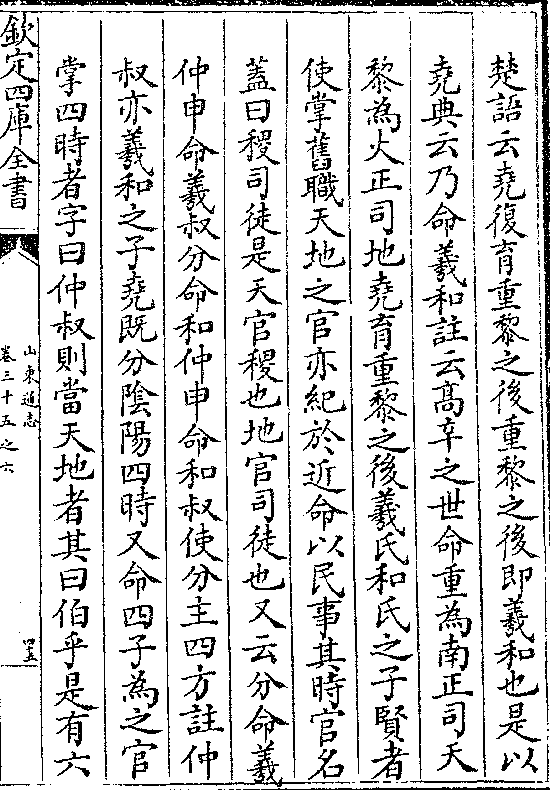 楚語云堯復育重黎之後重黎之後即羲和也是以
堯典云乃命羲和註云髙辛之世命重為南正司天
黎為火正司地堯育重黎之後羲氏和氏之子賢者
使掌舊職天地之官亦紀於近命以民事其時官名
蓋曰稷司徒是天官稷也地官司徒也又云分命羲
仲申命羲叔分命和仲申命和叔使分主四方註仲
叔亦羲和之子堯既分陰陽四時又命四子為之官
掌四時者字曰仲叔則當天地者其曰伯乎是有六
欽定四庫全書
山東通志
卷三十五之六
四五